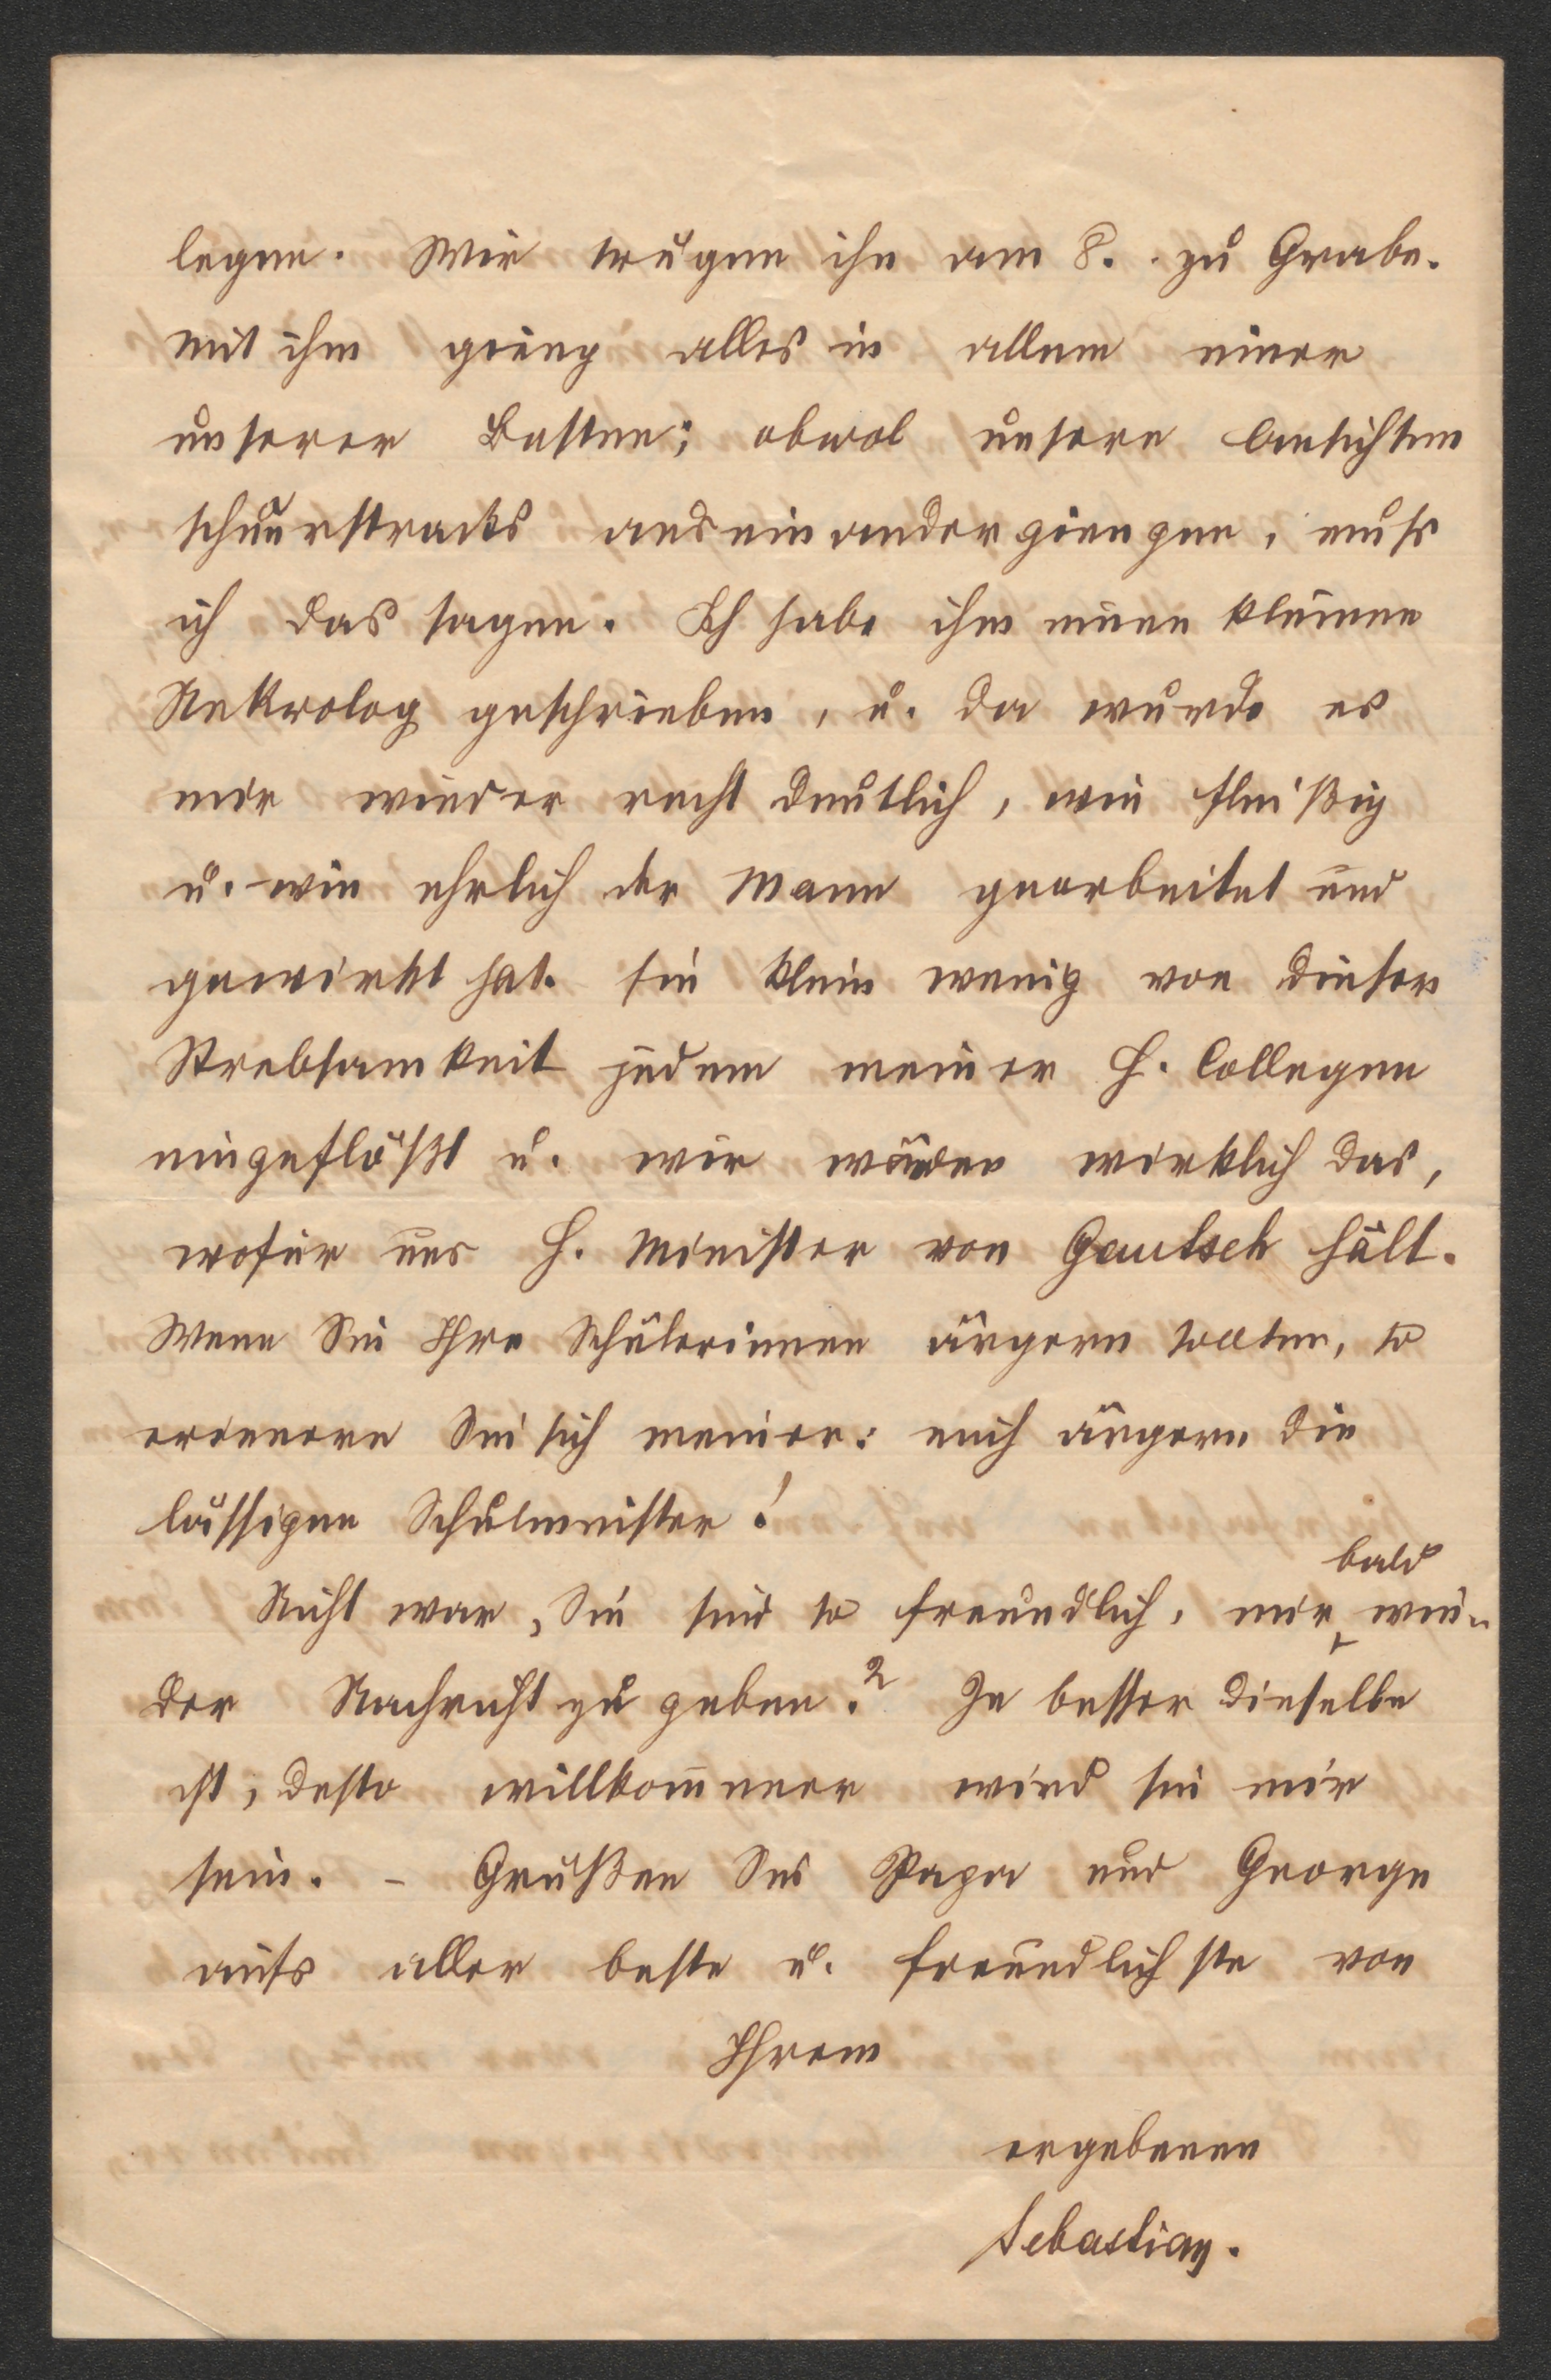 legen. Wir trugen ihn am 8. zu Grabe.
Mit ihm gieng alles in allem einer
unserer Besten; obwol unsere Ansichten
schnurstracks auseinandergiengen, muß
ich das sagen. Ich habe ihm einen kleinen
Nekrolog geschrieben, u. da wurde es
mir wieder recht deutlich, wie fleißig
u. wie ehrlich der Mann gearbeitet und
gewirkt hat. Ein klein wenig von dieser
Strebsamkeit jedem meiner H. Collegen
eingeflößt u. wir wären wirklich das,
wofür uns H. Minister von Gautsch hält.
Wenn Sie Ihre Schülerinnen ärgern sollten, so
erinnern Sie sich meiner: mich ärgern die
lässigen Schulmeister!
Nicht war, Sie sind so freundlich, mir bald wie-
der Nachricht zu geben? Je besser dieselbe
ist, desto willkom̄ener wird sie mir
sein. – Grüßen Sie Papa und George
aufs aller beste u. freundlichste von
Ihrem
ergebenen
Sebastian.